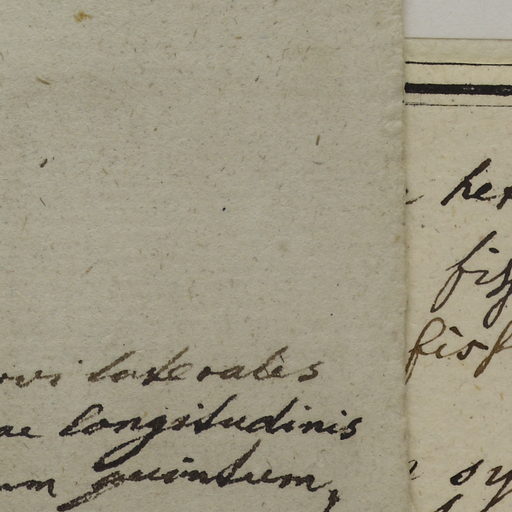 laterales
ae longitudinis
um quintum,
her
fis
fisf
sy